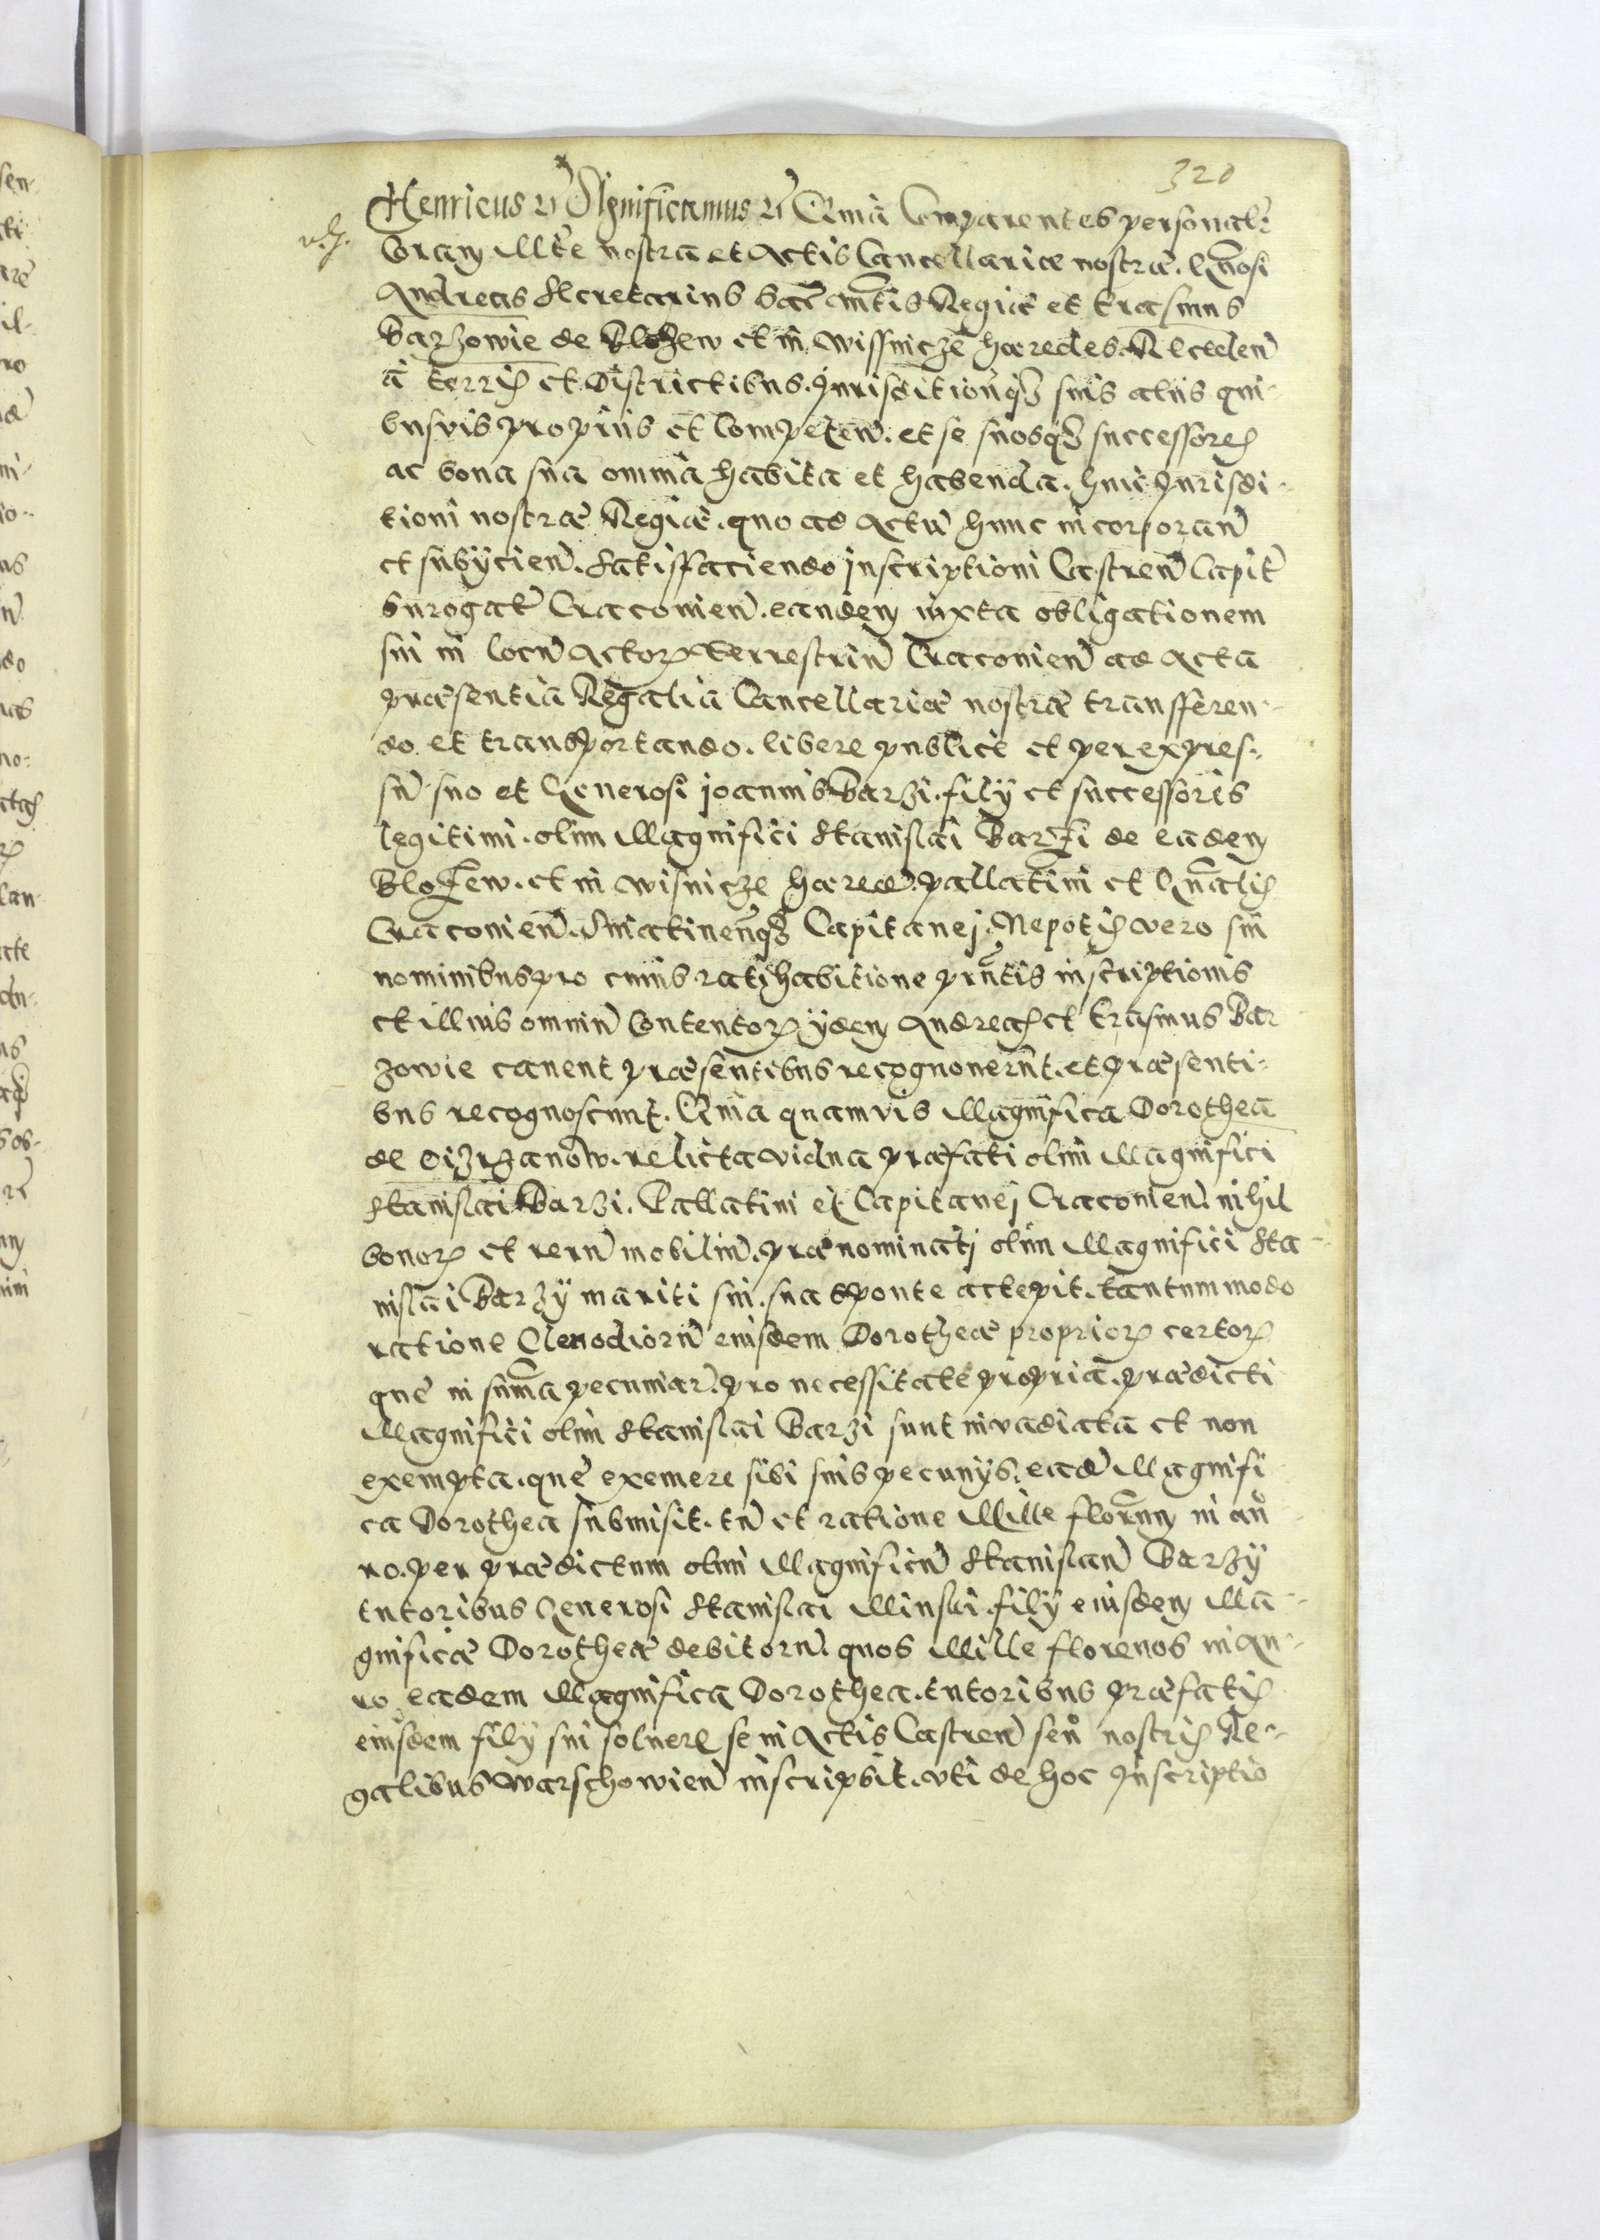 320
Henricus etc Significamus etc Quia Comparentes personalr
Coram Mte nostra et Actis Cancellariæ nostræ. Gnosi
Andreas Secretarius Sac Mtis Regiæ et Erasmus
Barzowie de Blozew et in Wissnicze hæredes. Receden
a terris et Districtibus. Jurisditionqз suis aliis qui-
busvis propriis et Competen. et se suosqз successores
ac bona sua omnia habita et habenda. huic Jurisdi-
tioni nostræ Regiæ. quo ad Actu hunc incorporan
et subycien. Satisfaciendo inscriptioni Castren Capit
Surogat Cracovien. eandem iuxta obligationem
sui in locu Actorꝝ Terrestriu Cracovien ad Acta
præsentia Regalia Cancellariæ nostræ transferen-
do et transportando. libere publice et per expres.
su suo et Generosi Joannis Barzi. fily et successoris
legitimi. olim Magnifici Stanislai Barzi de eadem
Blozew. et in Wisnicze hæred. pallatini et Gnalis
Cracovien. Sniatinenqз Capitanej. Nepotis vero sui
nominibus pro cuius ratihabitione prntis inscriptionis
et illius omniu Contentorꝝ ydem Andreas et Erasmus Bar
zowie cavent præsentibus recognoverut. et præsenti-
bus recognoscunt. Quia quamvis Magnifica Dorothea
de relicta vidua præfati olim Magnifici
Stanislai Barzi. Pallatini et Capitanej Cracovien. nihil
bonorꝝ et reru mobiliu. prænominatj olim Magnifici Sta-
nislai Barzy mariti sui. sua sponte accepit. tantummodo
ratione Clenodioru eiusdem Dorotheæ propriorꝝ certorꝝ
que in suma pecuniar. pro necessitate propria. prædicti
Magnifici olim Stanislai Barzi sunt invadiata et non
exempta. que exemere sibi suis pecunys. ead Magnifi
ca Dorothea submisit. tu et ratione Mille florenum in au
ro. per prædictum olim Magnificu Stanislau Barzy
tutoribus Generosi Stanislai Minski. fily eiusdem Ma-
gnificæ Dorotheæ debitoru. quos Mille florenos in Au-
ro eadem Magnifica Dorothea. tutoribus præfatis
eiusdem fily sui solvere se in Actis Castren seu nostris Re-
galibus Warschowien inscripsit. uti de hoc Inscriptio